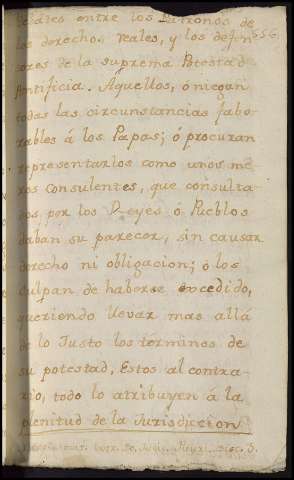 entre los Patronos de
los derechos reales, y los defen
sores de la suprema Potestad
Pontificia. Aquellos, ó niegan
todas las circunstancias fabo-
rables á los Papas; ó procuran
representarlos como unos me-
ros consulentes, que consulta-
dos por los Reyes ó Pueblos
daban su parecer, sin causar
derecho ni obligacion; ó los
culpan de haberse excedido,
queriendo llevar mas allá
de lo Justo los términos de
su potestad, Estos al contra-
rio, todo lo atribuyen á la
plenitud de la Jurisdiccion